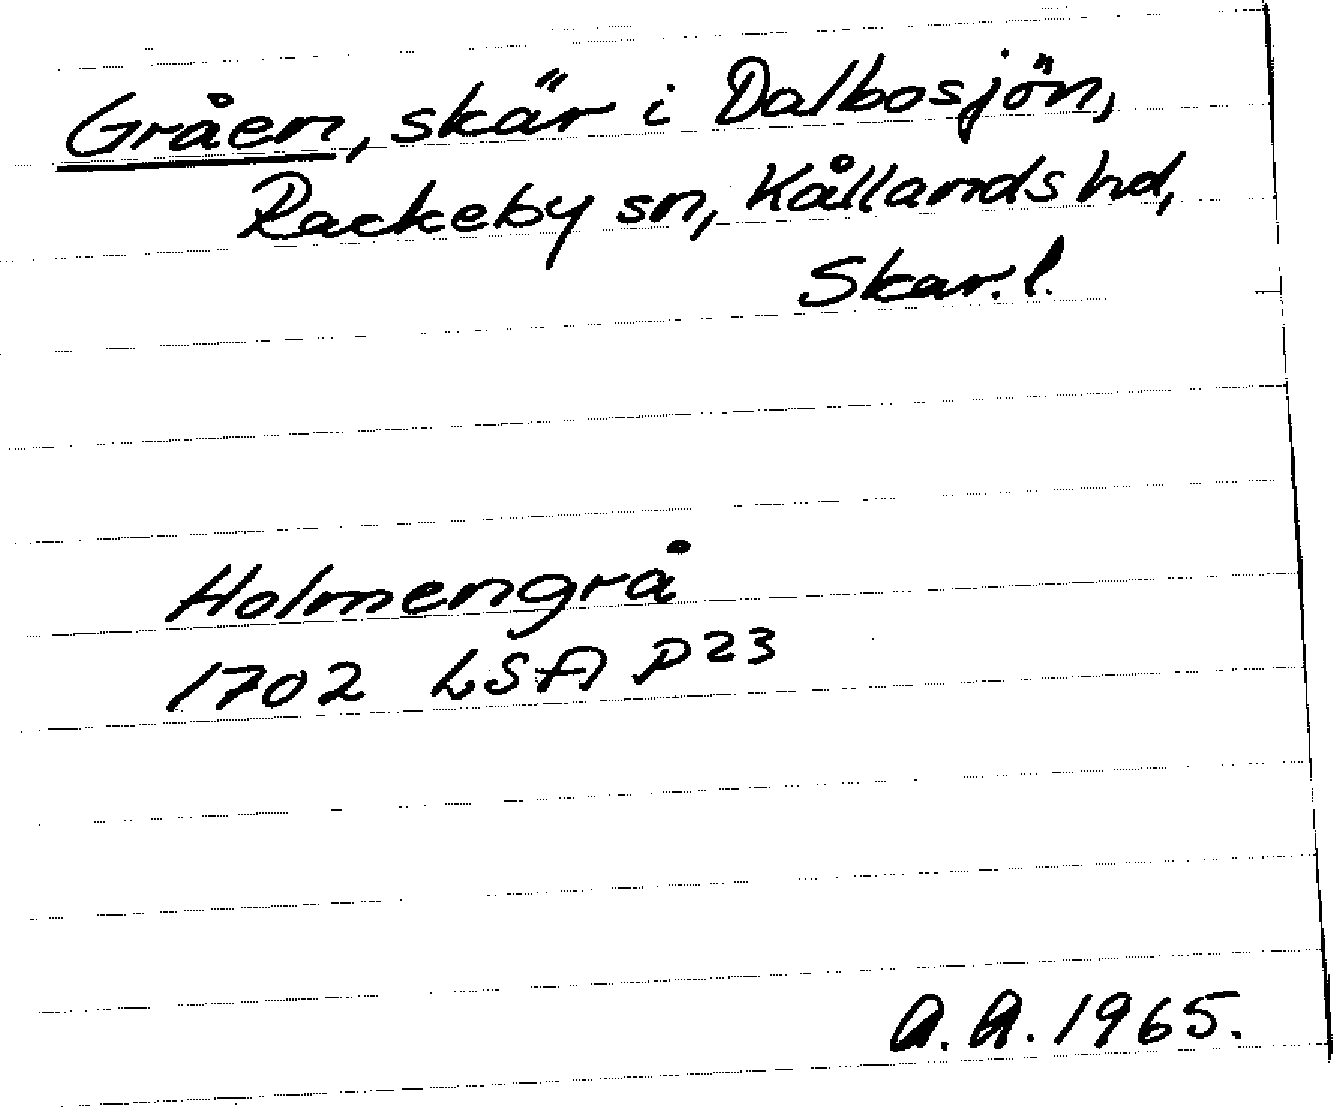 Gråen, skär i Dalbosjön,
Rackeby sn, Kållands hd,
Skar. l.
Holmengrå
1702 LSA P23
A. A. 1965.